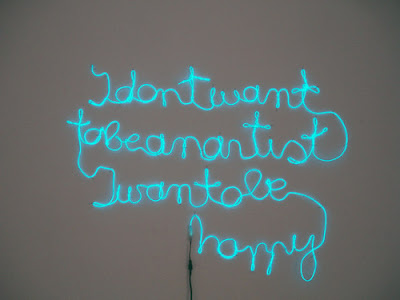 I dont want
to be an artist
I want to be
happy